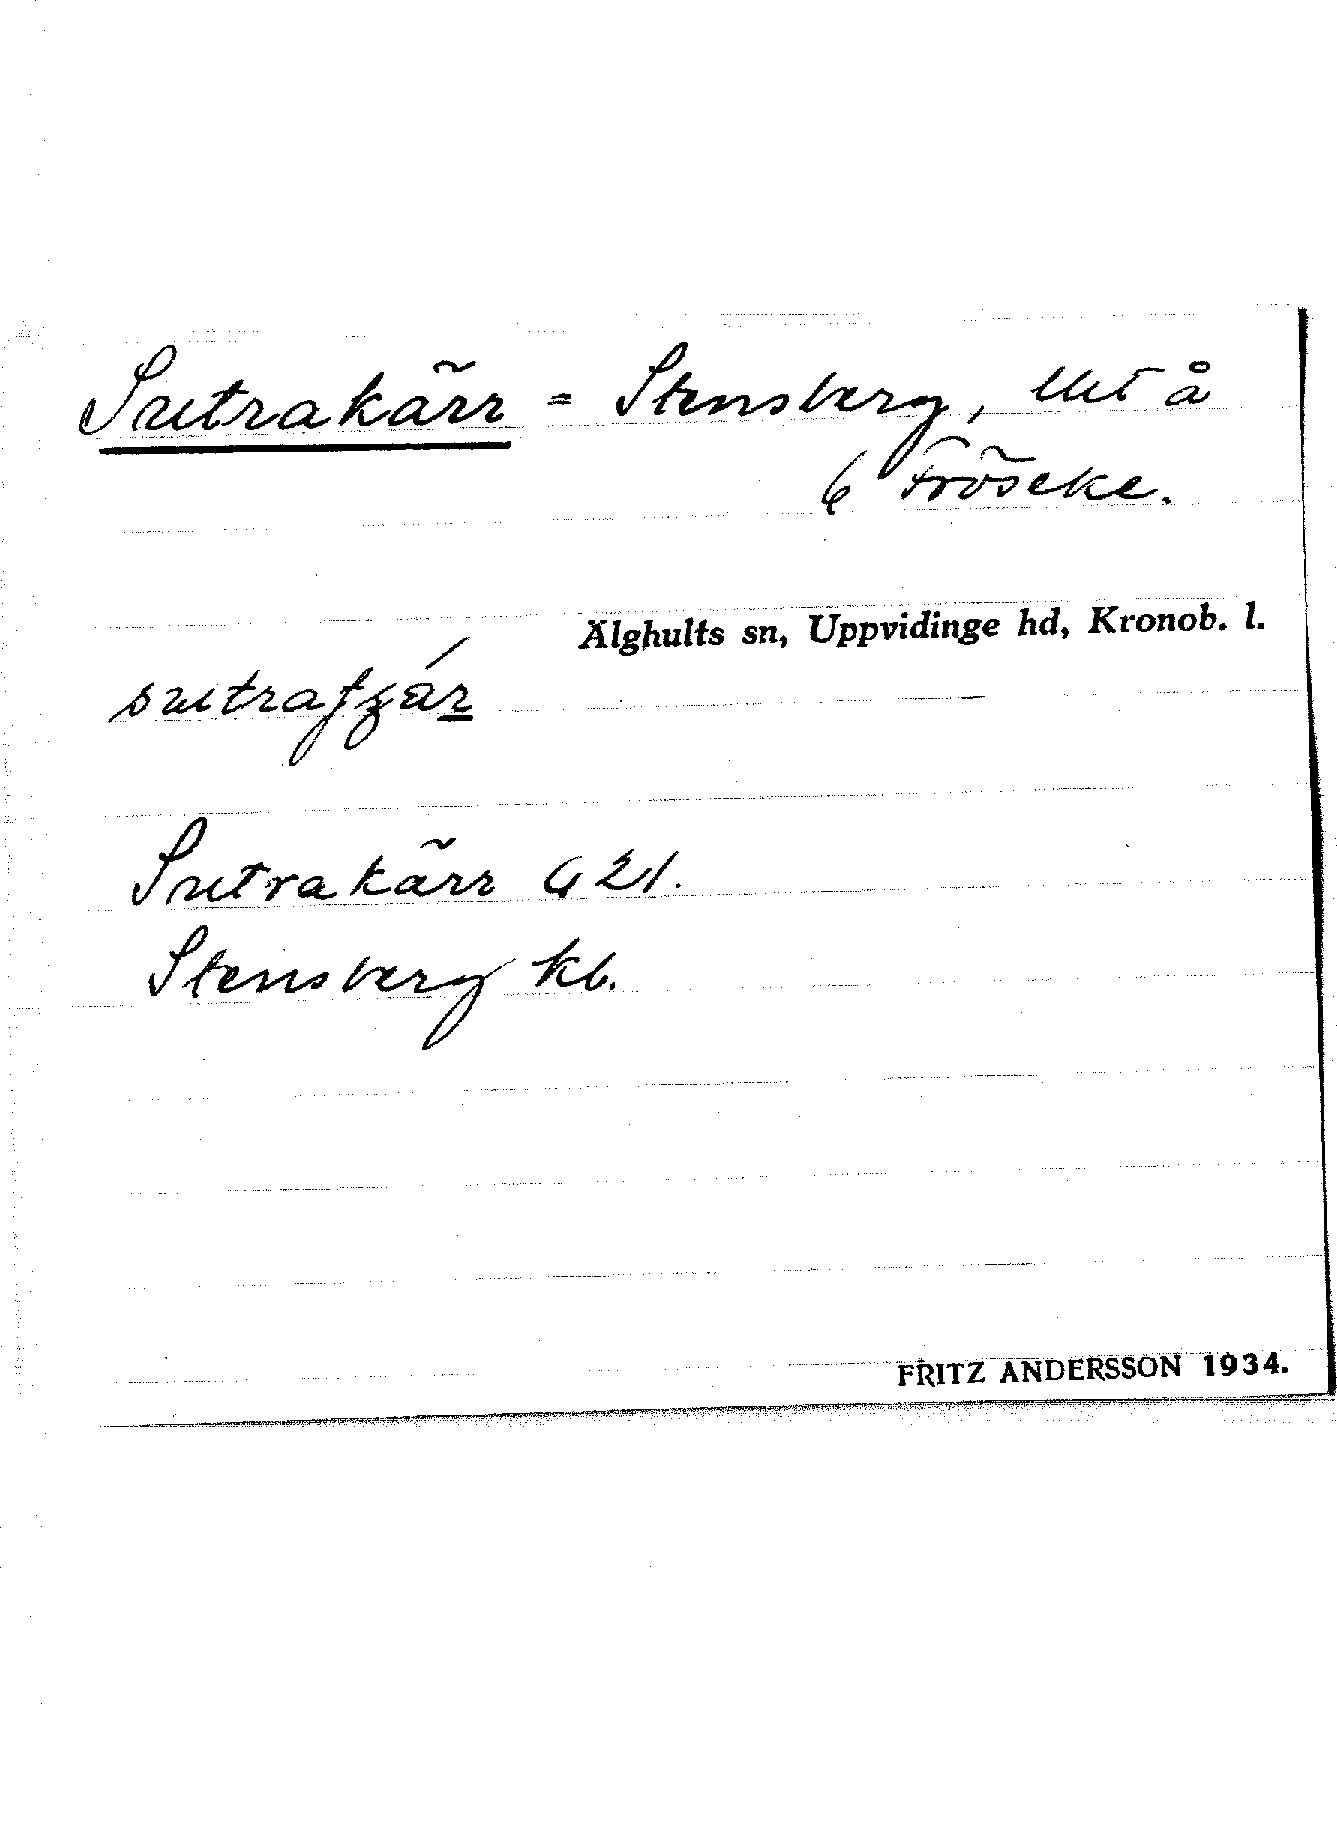 Sutrakärr = Stensberg, lht å
6 Fröseke.
Älghults sn, Uppvidinge hd, Kronob. l.
Sutrakärr G 21.
Stensberg kb.
FRITZ ANDERSSON 1934.